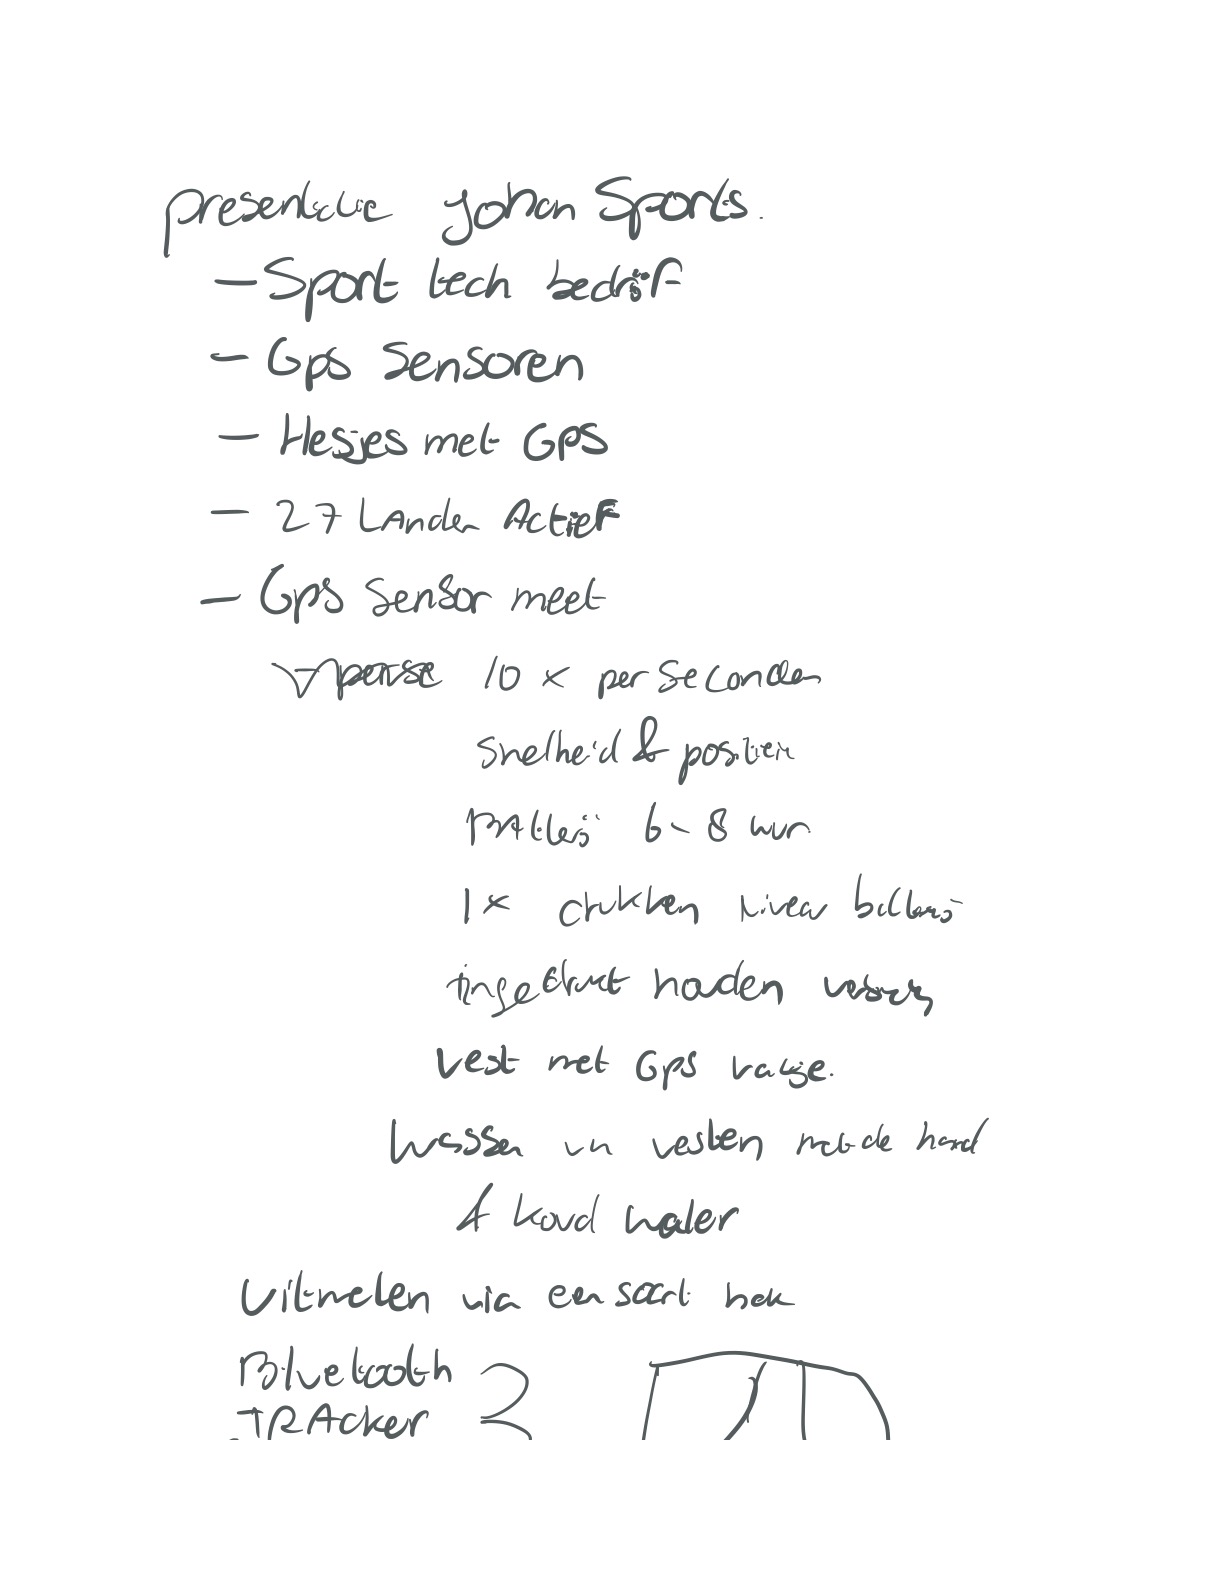 presentatie Johan Sports.
- Sport tech bedrijf
- Gps Sensoren
- Hesjes met GPS
- 27 Landen Actief
- Gps Sensor meet
10 x per Seconden
Snelheid & positien
BAtterij 6-8 uur
1x drukken niveau batterij
ingedrukt houden
Vest met GPS vakje.
Wassen van vesten met de hand
& koud water
Uitmeten via een soort hok
Bluetooth
TRAcker